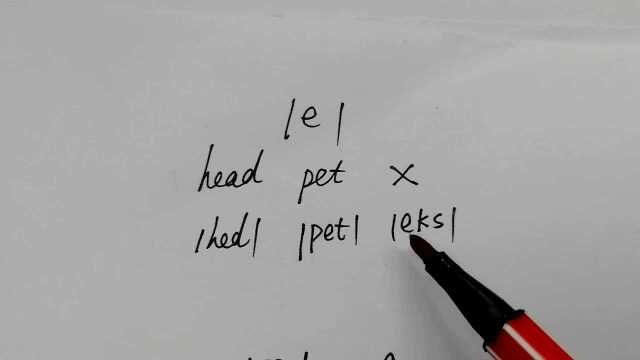 |e|
head pet x
|hed| |pet| |eks|